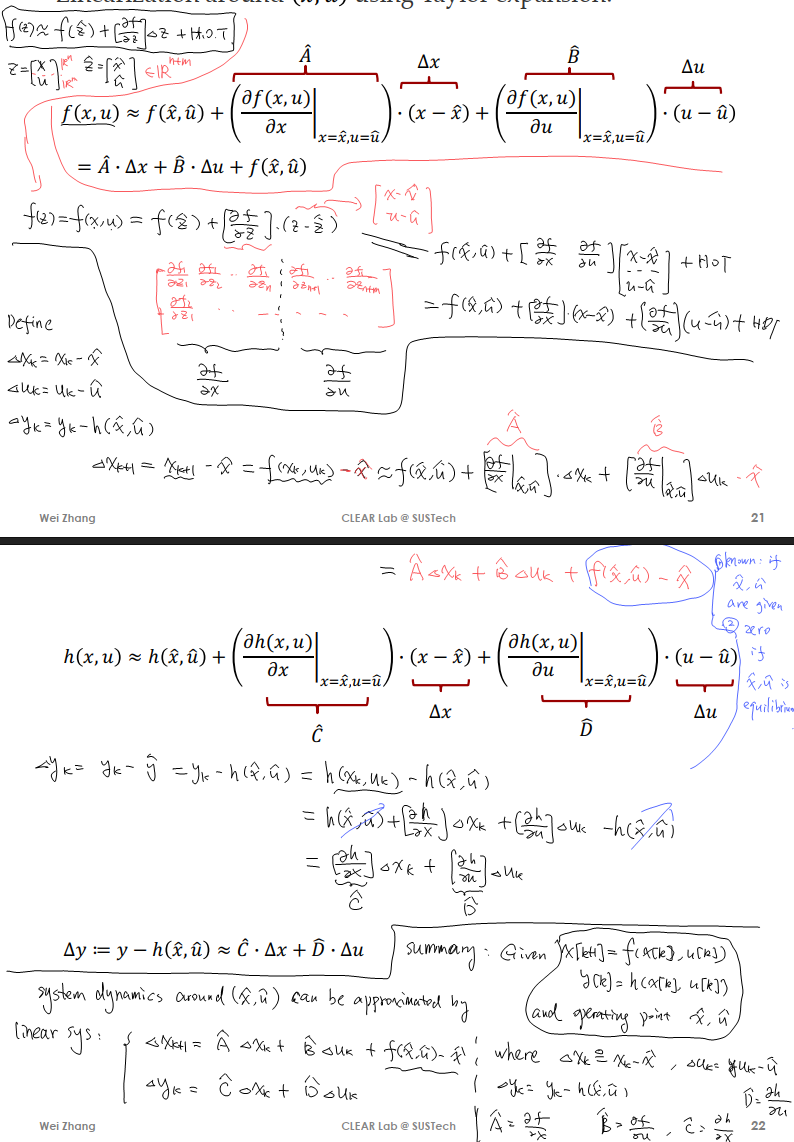 Linearization around (x̂, û) using Taylor expansion:
f(z) ≈ f(ẑ) + [∂f/∂z] Δz + H.O.T
z = [x u] ℝⁿ ℝᵐ ẑ = [x̂ û] ∈ ℝⁿ⁺ᵐ
Â Δx B̂ Δu
f(x, u) ≈ f(x̂, û) + (∂f(x, u)/∂x |x=x̂,u=û) · (x − x̂) + (∂f(x, u)/∂u |x=x̂,u=û) · (u − û)
= Â · Δx + B̂ · Δu + f(x̂, û)
f(z) = f(x,u) = f(ẑ) + [∂f/∂z] · (z − ẑ) → [x − x̂ u − û]
= f(x̂,û) + [∂f/∂x ∂f/∂u] [x − x̂ u − û] + HOT
= f(x̂,û) + [∂f/∂x]·(x − x̂) + [∂f/∂u](u − û) + HOT
[∂f₁/∂z₁ ∂f₁/∂z₂ ·· ∂f₁/∂zₙ ∂f₁/∂zₙ₊₁ ·· ∂f₁/∂zₙ₊ₘ
∂f₂/∂z₁ ·· ]
∂f/∂x ∂f/∂u
Define
Δxₖ = xₖ − x̂
Δuₖ = uₖ − û
Δyₖ = yₖ − h(x̂,û)
Â B̂
Δxₖ₊₁ = xₖ₊₁ − x̂ = f(xₖ,uₖ) − x̂ ≈ f(x̂,û) + [∂f/∂x |x̂,û] · Δxₖ + [∂f/∂u |x̂,û] Δuₖ − x̂
Wei Zhang CLEAR Lab @ SUSTech 21
= Â Δxₖ + B̂ Δuₖ + f(x̂,û) − x̂
① known: if
x̂, û
are given
② zero
if
x̂, û is
equilibrium
h(x, u) ≈ h(x̂, û) + (∂h(x, u)/∂x |x=x̂,u=û) · (x − x̂) + (∂h(x, u)/∂u |x=x̂,u=û) · (u − û)
Ĉ Δx D̂ Δu
Δyₖ = yₖ − ŷ = yₖ − h(x̂,û) = h(xₖ,uₖ) − h(x̂,û)
= h(x̂,û) + [∂h/∂x] Δxₖ + [∂h/∂u] Δuₖ − h(x̂,û)
= [∂h/∂x] Δxₖ + [∂h/∂u] Δuₖ
Ĉ D̂
Δy ≔ y − h(x̂, û) ≈ Ĉ · Δx + D̂ · Δu
summary: Given x[k+1] = f(x[k], u[k])
y[k] = h(x[k], u[k])
and operating point x̂, û
system dynamics around (x̂,û) can be approximated by
linear sys:
{ Δxₖ₊₁ = Â Δxₖ + B̂ Δuₖ + f(x̂,û) − x̂
Δyₖ = Ĉ Δxₖ + D̂ Δuₖ
where Δxₖ ≙ xₖ − x̂, Δuₖ = uₖ − û
Δyₖ = yₖ − h(x̂,û)
Â = ∂f/∂x B̂ = ∂f/∂u, Ĉ = ∂h/∂x D̂ = ∂h/∂u
Wei Zhang CLEAR Lab @ SUSTech 22